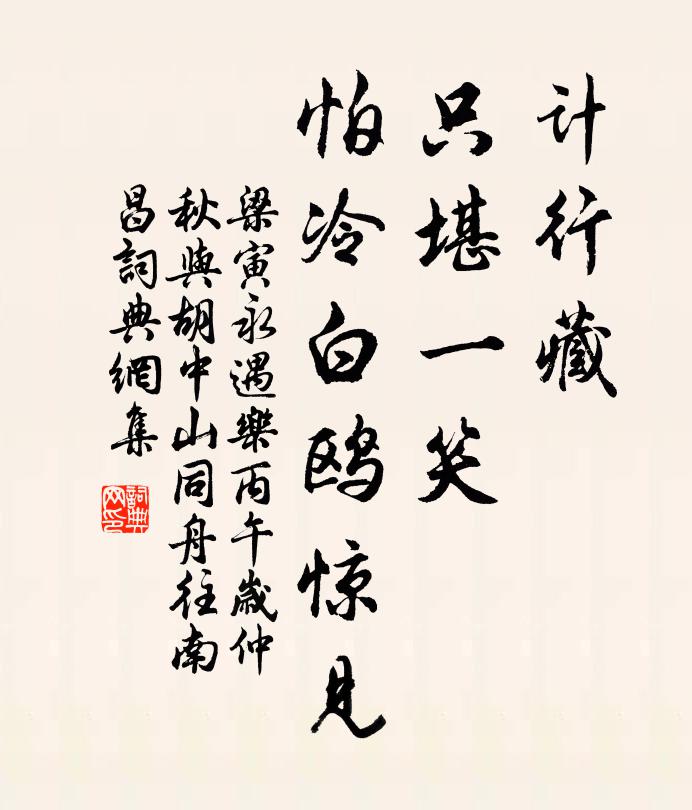 计行藏
只堪一笑
怕冷白鸥惊见
梁寅永遇樂丙午歲仲
秋與胡中山同舟往南
昌詞典網集
詞典
网印